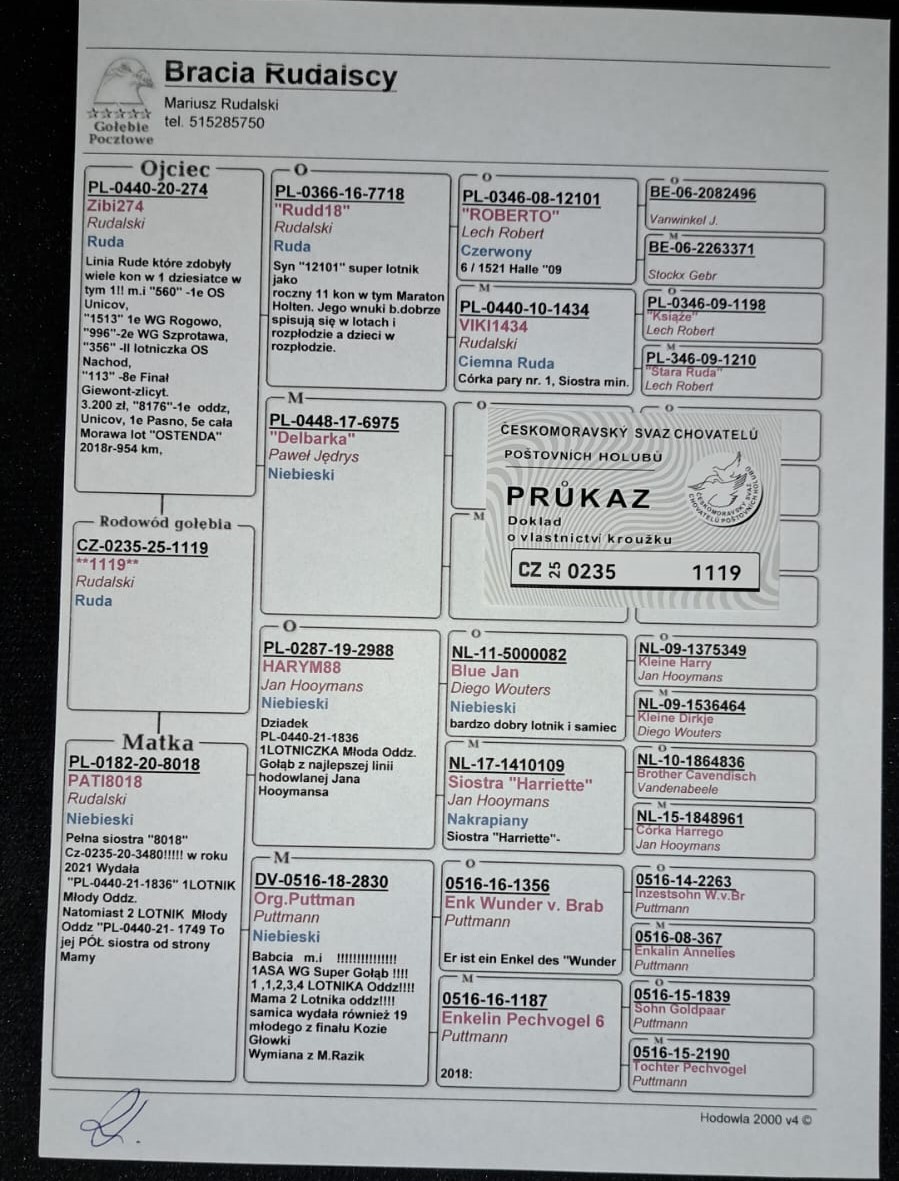 Bracia Rudalscy
Mariusz Rudalski
tel. 515285750
Gołębie
Pocztowe
Ojciec
PL-0440-20-274
Zibi274
Rudalski
Ruda
Linia Rude które zdobyły
wiele kon w 1 dziesiatce w
tym 1!! m.i "560" -1e OS
Unicov,
"1513" 1e WG Rogowo,
"996"-2e WG Szprotawa,
"356" -II lotniczka OS
Nachod,
"113" -8e Finał
Giewont-zlicyt.
3.200 zł, "8176"-1e oddz,
Unicov, 1e Pasno, 5e cała
Morawa lot "OSTENDA"
2018r-954 km,
Rodowód gołębia
CZ-0235-25-1119
**1119**
Rudalski
Ruda
Matka
PL-0182-20-8018
PATI8018
Rudalski
Niebieski
Pełna siostra "8018"
Cz-0235-20-3480!!!!! w roku
2021 Wydała
"PL-0440-21-1836" 1LOTNIK
Młody Oddz.
Natomiast 2 LOTNIK Młody
Oddz "PL-0440-21- 1749 To
jej PÓŁ siostra od strony
Mamy
O
PL-0366-16-7718
"Rudd18"
Rudalski
Ruda
Syn "12101" super lotnik
jako
roczny 11 kon w tym Maraton
Holten. Jego wnuki b.dobrze
spisują się w lotach i
rozpłodzie a dzieci w
rozpłodzie.
M
PL-0448-17-6975
"Delbarka"
Paweł Jędrys
Niebieski
O
PL-0287-19-2988
HARYM88
Jan Hooymans
Niebieski
Dziadek
PL-0440-21-1836
1LOTNICZKA Młoda Oddz.
Gołąb z najlepszej linii
hodowlanej Jana
Hooymansa
M
DV-0516-18-2830
Org.Puttman
Puttmann
Niebieski
Babcia m.i !!!!!!!!!!!!!!!
1ASA WG Super Gołąb !!!!
1 ,1,2,3,4 LOTNIKA Oddz!!!!
Mama 2 Lotnika oddz!!!!
samica wydała również 19
młodego z finału Kozie
Głowki
Wymiana z M.Razik
O
PL-0346-08-12101
"ROBERTO"
Lech Robert
Czerwony
6 / 1521 Halle "09
M
PL-0440-10-1434
VIKI1434
Rudalski
Ciemna Ruda
Córka pary nr. 1, Siostra min.
O
M
O
NL-11-5000082
Blue Jan
Diego Wouters
Niebieski
bardzo dobry lotnik i samiec
M
NL-17-1410109
Siostra "Harriette"
Jan Hooymans
Nakrapiany
Siostra "Harriette"-
O
0516-16-1356
Enk Wunder v. Brab
Puttmann
Er ist ein Enkel des "Wunder
M
0516-16-1187
Enkelin Pechvogel 6
Puttmann
2018:
O
BE-06-2082496
Vanwinkel J.
M
BE-06-2263371
Stockx Gebr
O
PL-0346-09-1198
"Książe"
Lech Robert
M
PL-346-09-1210
"Stara Ruda"
Lech Robert
O
ČESKOMORAVSKÝ SVAZ CHOVATELŮ
POŠTOVNÍCH HOLUBŮ
PRŮKAZ
Doklad
o vlastnictví kroužku
ČESKOMORAVSKÝ SVAZ
CHOVATELŮ POŠTOVNÍCH HOLUBŮ
CZ 25 0235 1119
O
NL-09-1375349
Kleine Harry
Jan Hooymans
M
NL-09-1536464
Kleine Dirkje
Diego Wouters
O
NL-10-1864836
Brother Cavendisch
Vandenabeele
M
NL-15-1848961
Córka Harrego
Jan Hooymans
O
0516-14-2263
Inzestsohn W.v.Br
Puttmann
M
0516-08-367
Enkalin Annelies
Puttmann
O
0516-15-1839
Sohn Goldpaar
Puttmann
M
0516-15-2190
Tochter Pechvogel
Puttmann
Hodowla 2000 v4 ©